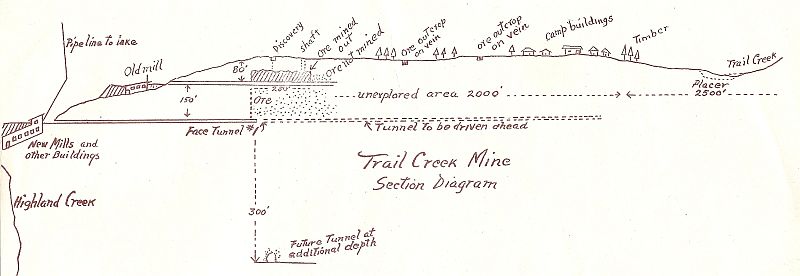 Pipeline to lake
Old mill
Discovery
shaft
Ore mined
out
Ore not mined
ore outcrop
on vein
ore outcrop
on vein
Camp buildings
Timber
Trail Creek
Placer
2500'
80'
200'
150'
Ore
unexplored area 2000'
Face Tunnel #1
Tunnel to be driven ahead
New Mills and
other Buildings
Trail Creek Mine
Section Diagram
Highland Creek
300'
Future Tunnel at
additional depth